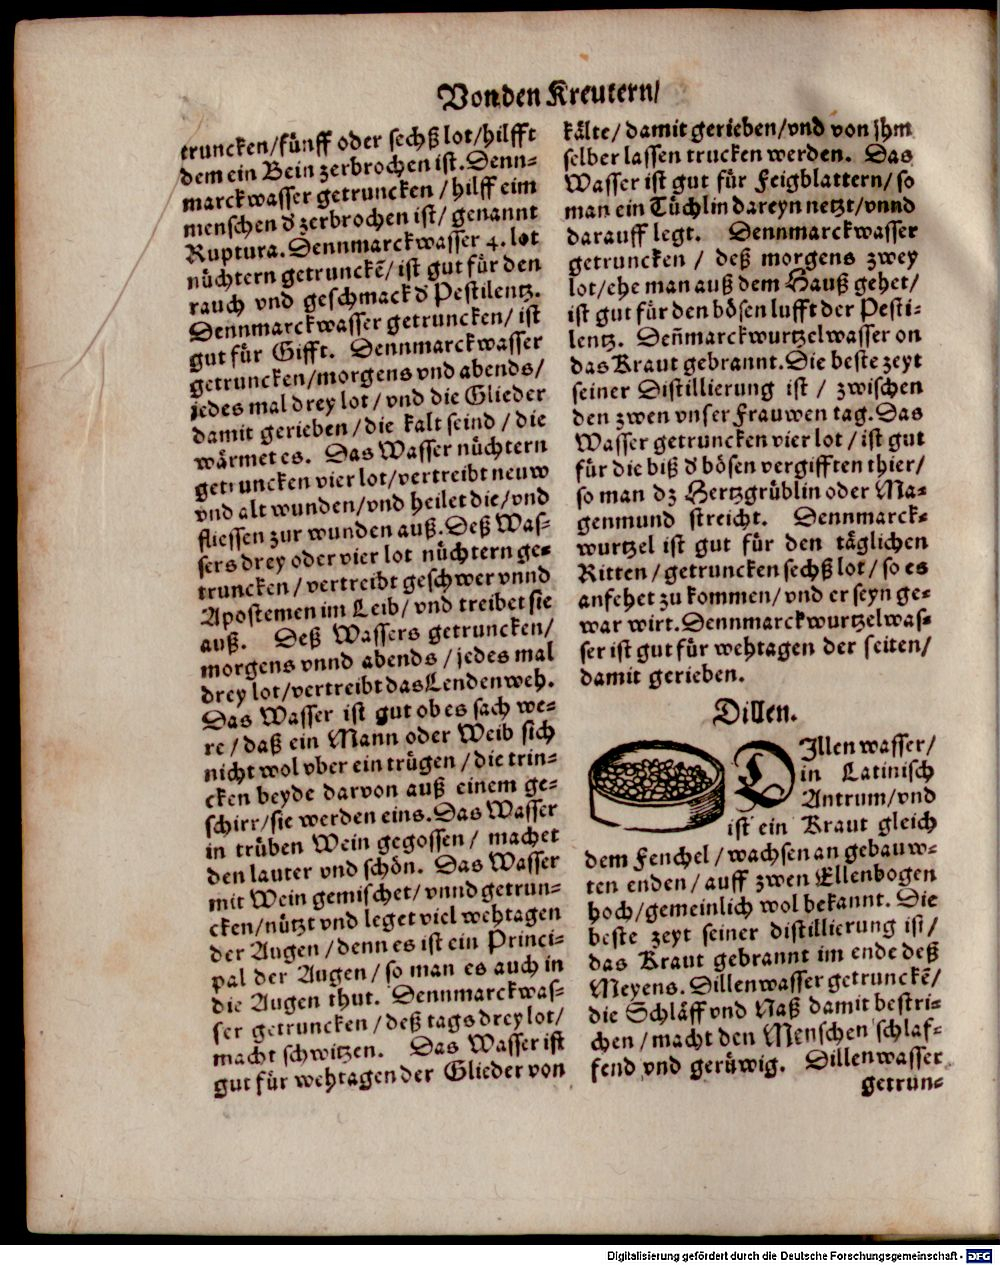 Von den Kreutern/
truncken/fünff oder sechß lot/hilfft
dem ein Bein zerbrochen ist. Denn-
marckwasser getruncken/hilff eim
menschen d' zerbrochen ist/genannt
Ruptura. Dennmarckwasser 4. lot
nüchtern getrunckẽ/ist gut für den
rauch vnd geschmack d' Pestilentz.
Dennmarckwasser getruncken/ist
gut für Gifft. Dennmarckwasser
getruncken/morgens vnd abends/
jedes mal drey lot/vnd die Glieder
damit gerieben/die kalt seind/die
wärmet es. Das Wasser nüchtern
getruncken vier lot/vertreibt neuw
vnd alt wunden/vnd heilet die/vnd
fliessen zur wunden auß. Deß Was-
sers drey oder vier lot nüchtern ge-
truncken/vertreibt geschwer vnnd
Apostemen im Leib/vnd treibet sie
auß. Deß Wassers getruncken/
morgens vnnd abends/jedes mal
drey lot/vertreibt das Lendenweh.
Das Wasser ist gut ob es sach we-
re/daß ein Mann oder Weib sich
nicht wol vber ein trügen/die trin-
cken beyde darvon auß einem ge-
schirr/sie werden eins. Das Wasser
in trüben Wein gegossen/machet
den lauter vnd schön. Das Wasser
mit Wein gemischet/vnnd getrun-
cken/nützt vnd leget viel wehtagen
der Augen/denn es ist ein Princi-
pal der Augen/so man es auch in
die Augen thut. Dennmarckwas-
ser getruncken/deß tags drey lot/
macht schwitzen. Das Wasser ist
gut für wehtagen der Glieder von
kälte/damit gerieben/vnd von jhm
selber lassen trucken werden. Das
Wasser ist gut für Feigblattern/so
man ein Tüchlin dareyn netzt/vnnd
darauff legt. Dennmarckwasser
getruncken/deß morgens zwey
lot/ehe man auß dem Hauß gehet/
ist gut für den bösen lufft der Pesti-
lentz. Den̄marckwurtzelwasser on
das Kraut gebrannt. Die beste zeyt
seiner Distillierung ist/zwischen
den zwen vnser Frauwen tag. Das
Wasser getruncken vier lot/ist gut
für die biß d' bösen vergifften thier/
so man dz Hertzgrüblin oder Ma-
genmund streicht. Dennmarck-
wurtzel ist gut für den täglichen
Ritten/getruncken sechß lot/so es
anfehet zu kommen/vnd er seyn ge-
war wirt. Dennmarckwurtzelwas-
ser ist gut für wehtagen der seiten/
damit gerieben.
Dillen.
DJllen wasser/
in Latinisch
Antrum/vnd
ist ein Kraut gleich
dem Fenchel/wachsen an gebauw-
ten enden/auff zwen Ellenbogen
hoch/gemeinlich wol bekannt. Die
beste zeyt seiner distillierung ist/
das Kraut gebrannt im ende deß
Meyens. Dillenwasser getrunckẽ/
die Schläff vnd Naß damit bestri-
chen/macht den Menschen schlaf-
fend vnd gerüwig. Dillenwasser
getrun-
Digitalisierung gefördert durch die Deutsche Forschungsgemeinschaft - DFG